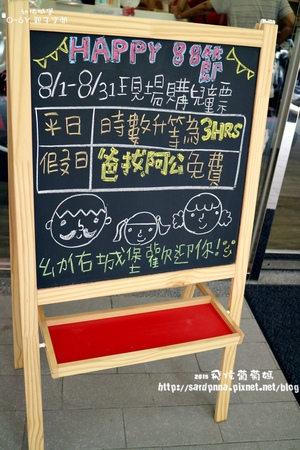 HAPPY 88節
8/1-8/31現場購票
平日 時數升等為3HRS
假日 爸挍阿公免費
幼佑城堡歡迎你!
2015 飛揚葡萄媽
http://sardpnna.pixnet.net/blog